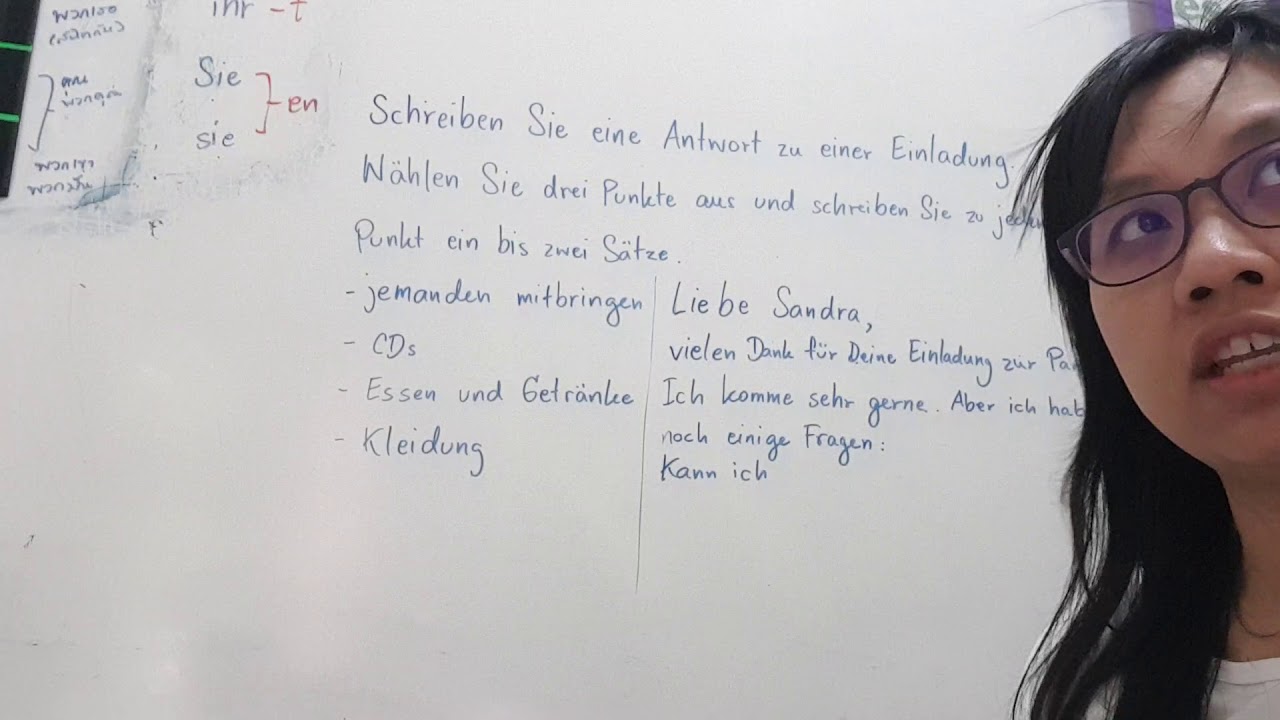 พวกเธอ
ihr -t
คุณ
พวกคุณ
Sie
sie
en
พวกเขา
พวกมัน
Schreiben Sie eine Antwort zu einer Einladung.
Wählen Sie drei Punkte aus und schreiben Sie zu
Punkt ein bis zwei Sätze.
- jemanden mitbringen
- CDs
- Essen und Getränke
- Kleidung
Liebe Sandra,
vielen Dank für Deine Einladung zur
Ich komme sehr gerne. Aber ich
noch einige Fragen:
Kann ich